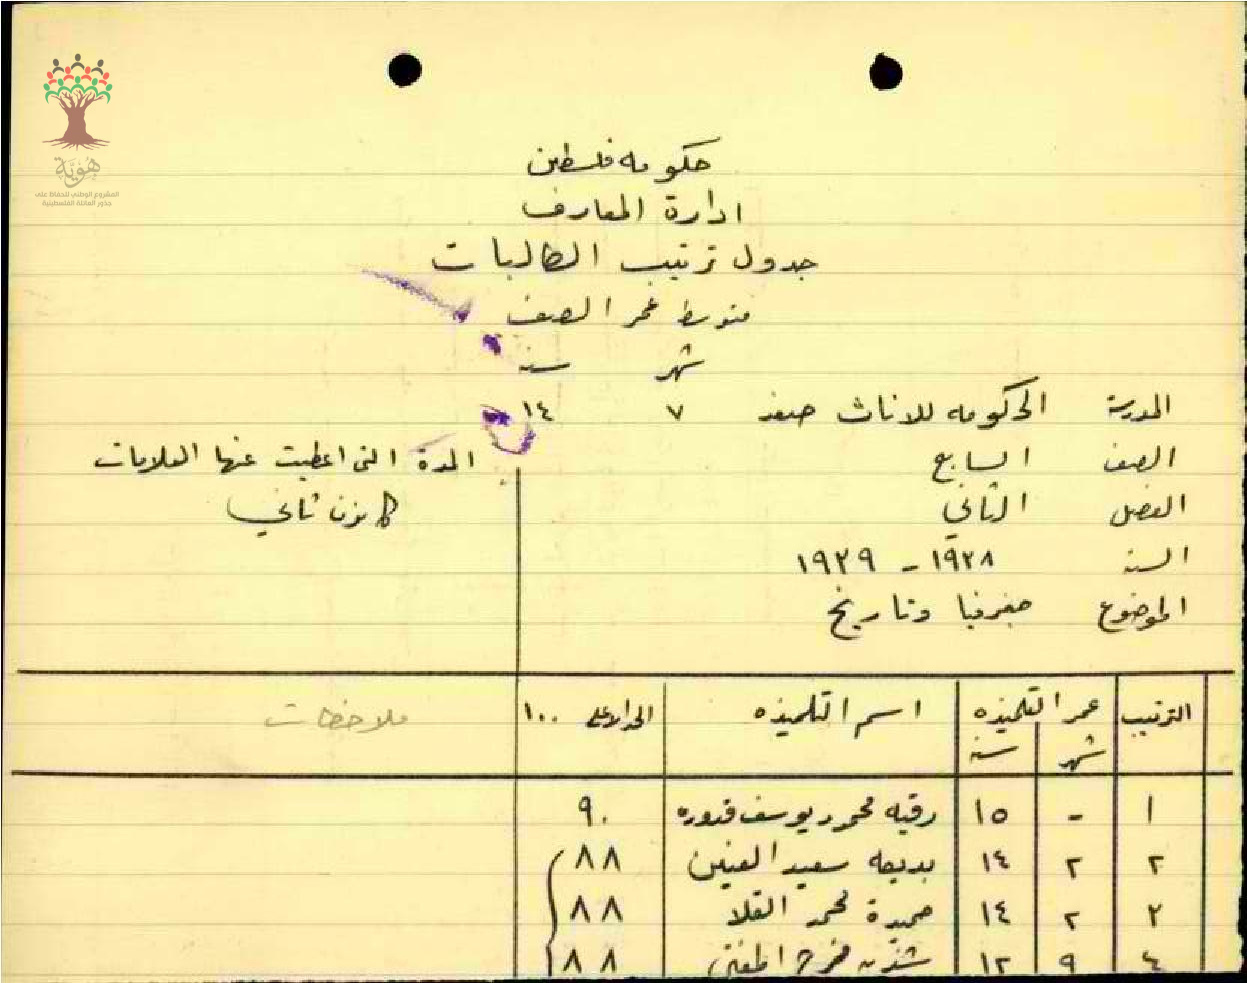 هُوِيَّة
المشروع الوطني للحفاظ على
جذور العائلة الفلسطينية
حكومه فلسطين
ادارة المعارف
جدول ترتيب الطالبات
متوسط عمر الصف
شهر سنه
المدرسة الحكومه للاناث صفد ٧ ١٤
الصف السابع
المدة التي اعطيت عنها العلامات
الفصل الثاني
كانون ثاني
السنه ١٩٢٨ - ١٩٢٩
الموضوع جغرفيا وتاريخ
الترتيب عمر التلميذه اسم التلميذه الحد الاعلى ١٠٠ ملاحظات
شهر سنه
١ - ١٥ رقيه محمود يوسف قدوره ٩٠
٢ ٢ ١٤ بديعه سعيد ٨٨
٣ ٢ ١٤ حميدة محمد القلا ٨٨
٤ ٩ ١٢ المفتي ٨٨